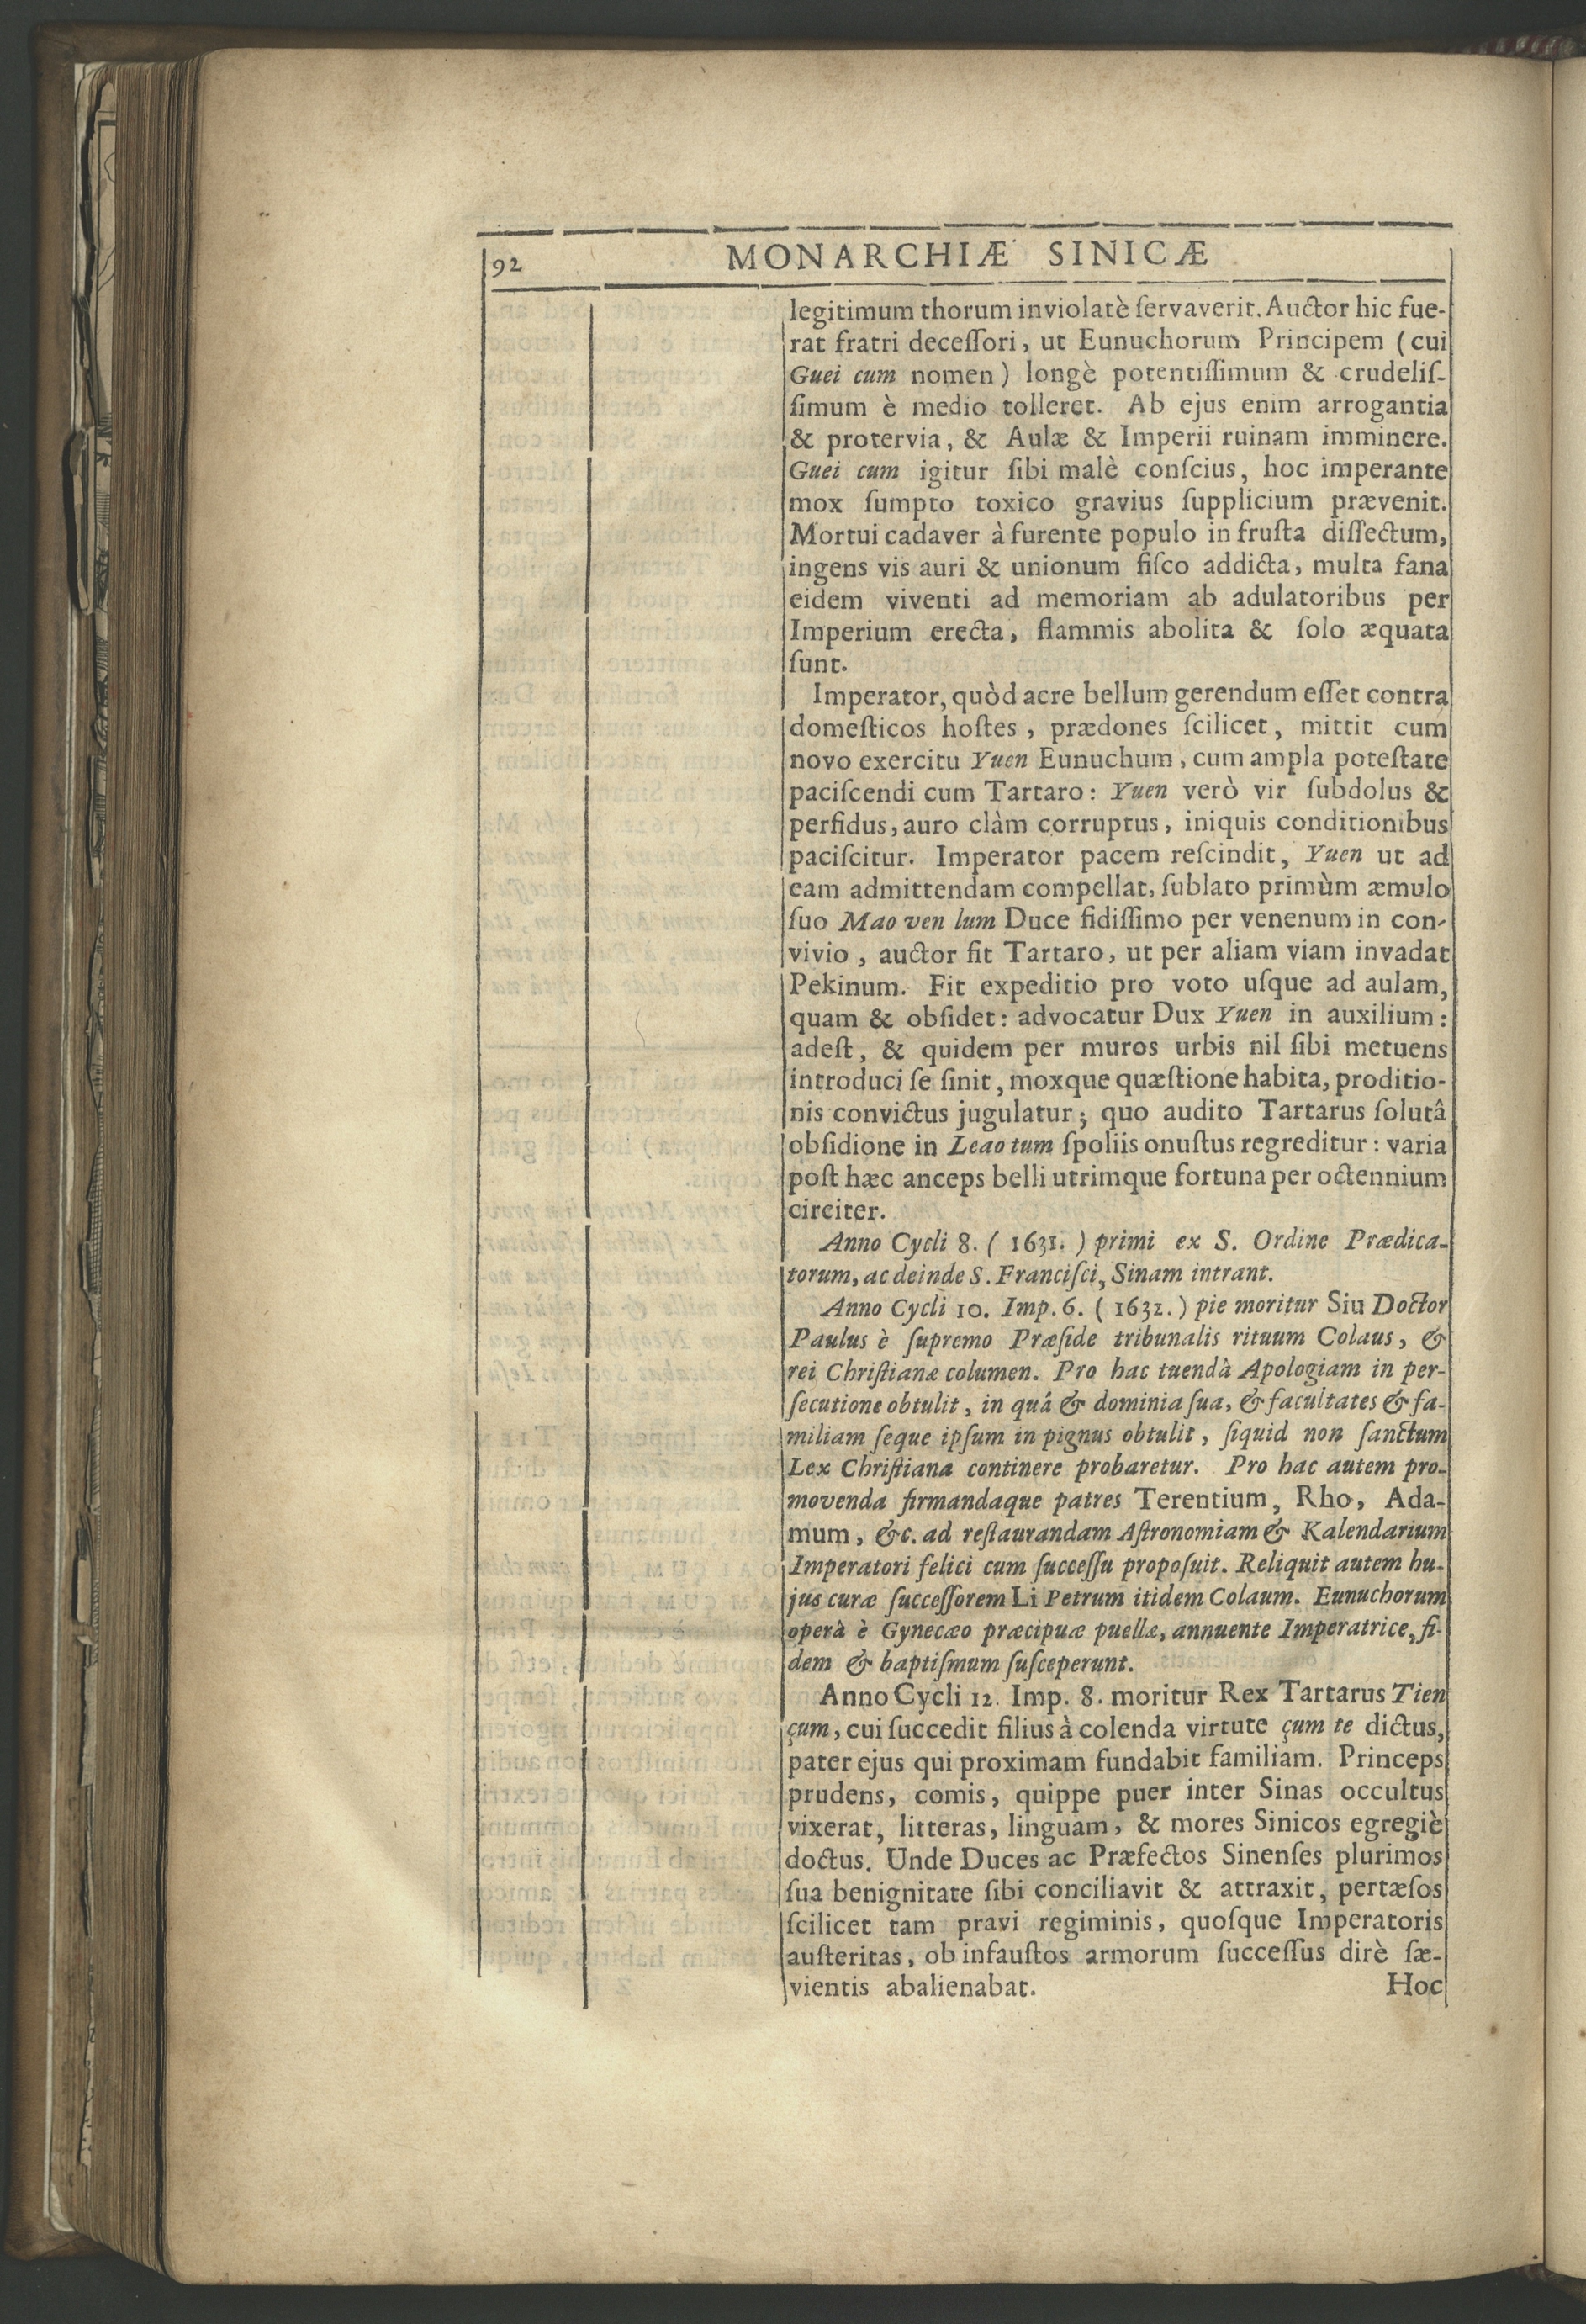 92 MONARCHIÆ SINICÆ
legitimum thorum inviolatè ſervaverit. Auctor hic fue-
rat fratri deceſſori, ut Eunuchorum Principem (cui
Guei cum nomen) longè potentiſſimum & crudeliſ-
ſimum è medio tolleret. Ab ejus enim arrogantia
& protervia, & Aulæ & Imperii ruinam imminere.
Guei cum igitur ſibi malè conſcius, hoc imperante
mox ſumpto toxico gravius ſupplicium prævenit.
Mortui cadaver à furente populo in fruſta diſſectum,
ingens vis auri & unionum fiſco addicta, multa fana
eidem viventi ad memoriam ab adulatoribus per
Imperium erecta, flammis abolita & ſolo æquata
ſunt.
Imperator, quòd acre bellum gerendum eſſet contra
domeſticos hoſtes, prædones ſcilicet, mittit cum
novo exercitu Yuen Eunuchum, cum ampla poteſtate
paciſcendi cum Tartaro: Yuen verò vir ſubdolus &
perfidus, auro clàm corruptus, iniquis conditionibus
paciſcitur. Imperator pacem reſcindit, Yuen ut ad
eam admittendam compellat, ſublato primùm æmulo
ſuo Mao ven lum Duce fidiſſimo per venenum in con-
vivio, auctor fit Tartaro, ut per aliam viam invadat
Pekinum. Fit expeditio pro voto uſque ad aulam,
quam & obſidet: advocatur Dux Yuen in auxilium:
adeſt, & quidem per muros urbis nil ſibi metuens
introduci ſe ſinit, moxque quæſtione habita, proditio-
nis convictus jugulatur; quo audito Tartarus ſolutâ
obſidione in Leao tum ſpoliis onuſtus regreditur: varia
poſt hæc anceps belli utrimque fortuna per octennium
circiter.
Anno Cycli 8. (1631.) primi ex S. Ordine Prædica-
torum, ac deinde S. Franciſci, Sinam intrant.
Anno Cycli 10. Imp. 6. (1632.) pie moritur Siu Doctor
Paulus è ſupremo Præſide tribunalis rituum Colaus, &
rei Chriſtianæ columen. Pro hac tuendà Apologiam in per-
ſecutione obtulit, in quâ & dominia ſua, & facultates & fa-
miliam ſeque ipſum in pignus obtulit, ſiquid non ſanctum
Lex Chriſtiana continere probaretur. Pro hac autem pro-
movenda firmandaque patres Terentium, Rho, Ada-
mum, &c. ad reſtaurandam Aſtronomiam & Kalendarium
Imperatori felici cum ſucceſſu propoſuit. Reliquit autem hu-
jus curæ ſucceſſorem Li Petrum itidem Colaum. Eunuchorum
operà è Gynecæo præcipuæ puellæ, annuente Imperatrice, fi-
dem & baptiſmum ſuſceperunt.
Anno Cycli 12. Imp. 8. moritur Rex Tartarus Tien
çum, cui ſuccedit filius à colenda virtute çum te dictus,
pater ejus qui proximam fundabit familiam. Princeps
prudens, comis, quippe puer inter Sinas occultus
vixerat, litteras, linguam, & mores Sinicos egregiè
doctus. Unde Duces ac Præfectos Sinenſes plurimos
ſua benignitate ſibi conciliavit & attraxit, pertæſos
ſcilicet tam pravi regiminis, quoſque Imperatoris
auſteritas, ob infauſtos armorum ſucceſſus dirè ſæ-
vientis abalienabat. Hoc